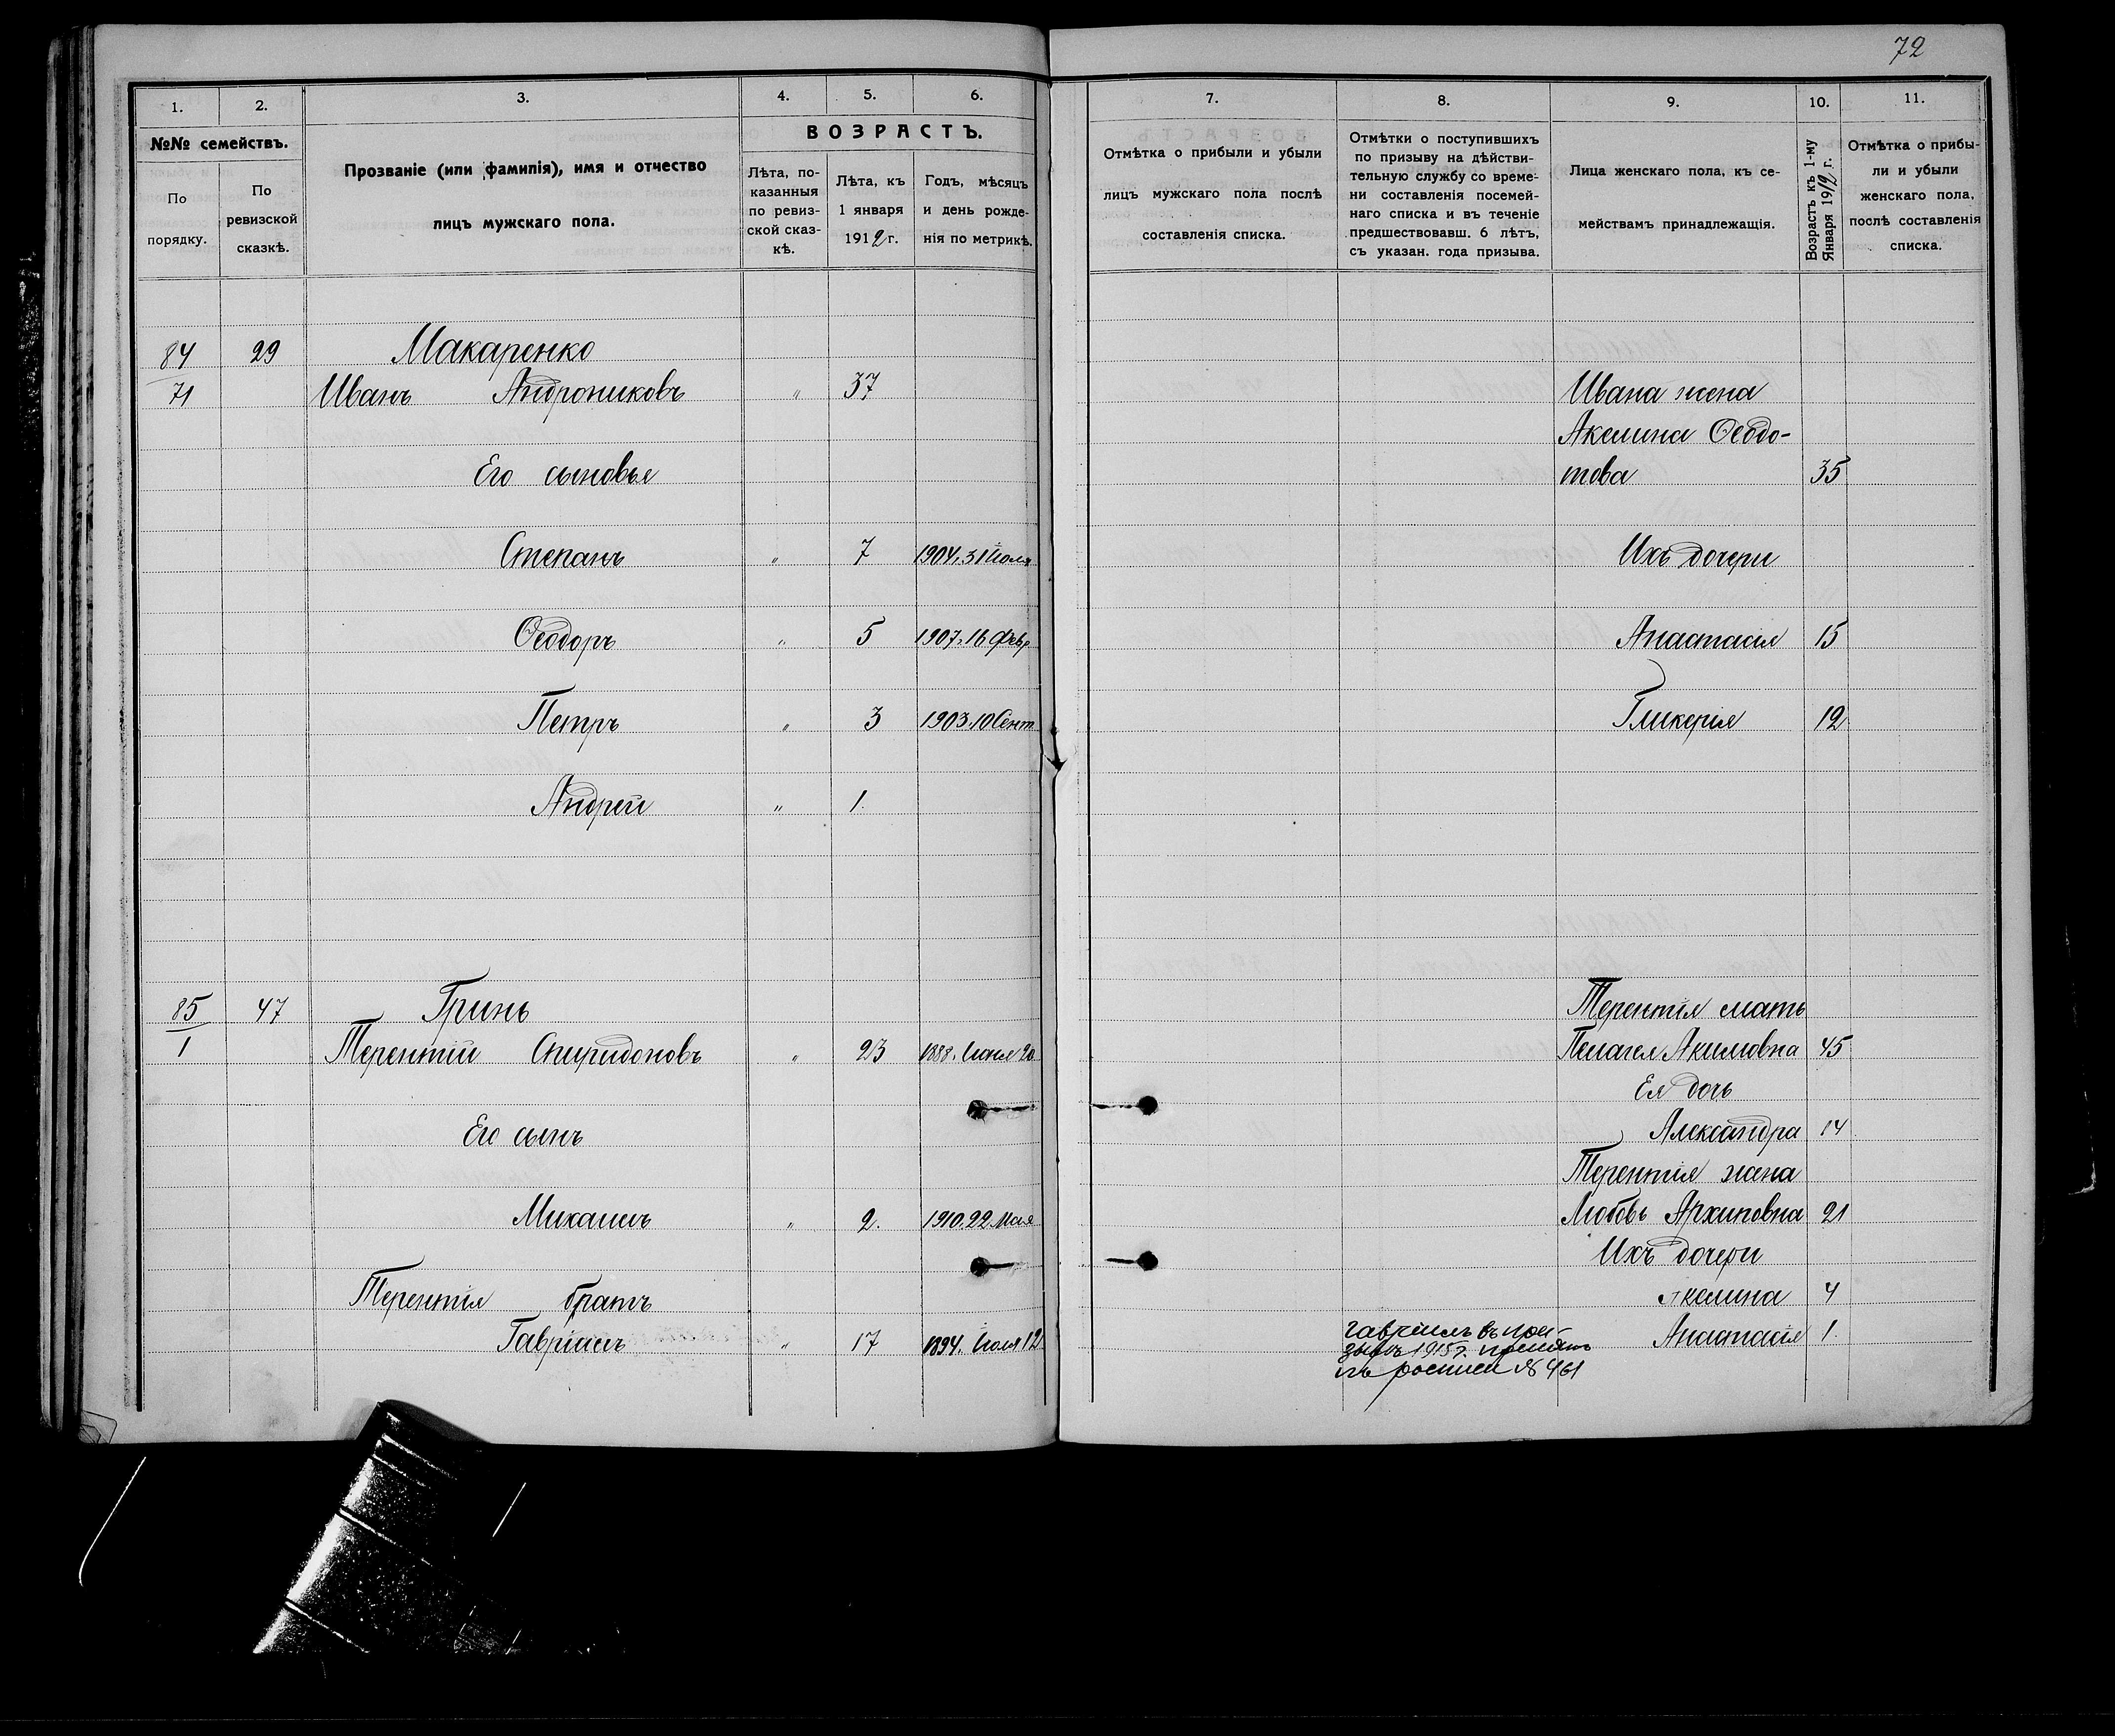 72
1. 2. 3. 4. 5. 6. 7. 8. 9. 10. 11.
№№ семействъ.
По порядку.
По ревизской сказкѣ.
Прозваніе (или фамилія), имя и отчество
лицъ мужскаго пола.
ВОЗРАСТЪ.
Лѣта, по-
казанныя
по ревиз-
ской сказ-
кѣ.
Лѣта, къ
1 января
1912 г.
Годъ, мѣсяцъ
и день рожде-
нія по метрикѣ.
Отмѣтка о прибыли и убыли
лицъ мужскаго пола послѣ
составленія списка.
Отмѣтки о поступившихъ
по призыву на дѣйстви-
тельную службу со време-
ни составленія посемей-
наго списка и въ теченіе
предшествовавш. 6 лѣтъ,
съ указан. года призыва.
Лица женскаго пола, къ се-
мействамъ принадлежащія.
Возрастъ къ 1-му
Января 1912 г.
Отмѣтка о прибы-
ли и убыли
женскаго пола,
послѣ составленія
списка.
84 29 Макаренко
71 Иванъ Андрониковъ " 37 Ивана жена
Акилина Ѳеодо-
Его сыновья това 35
Степанъ " 7 1904. 31 Іюля Ихъ дочери
Ѳеодоръ " 5 1907. 16 Февр Анастасія 15
Петръ " 3 1903. 10 Сент Гликерія 12
Андрей " 1.
85 47 Гринь Терентія мать
1 Терентій Спиридоновъ " 23 1888. 20 Пелагея Акимовна 45
Ея дочь
Его сынъ Александра 14
Терентія жена
Михаилъ " 2. 1910. 22 Мая Любовь Архиповна 21
Ихъ дочери
Терентія братъ Акилина 4
Гавріилъ " 17 1894. Іюля 12 Анастасія 1.
Гавріилъ въ при-
зывъ 1915 г. принятъ
росписи № 461